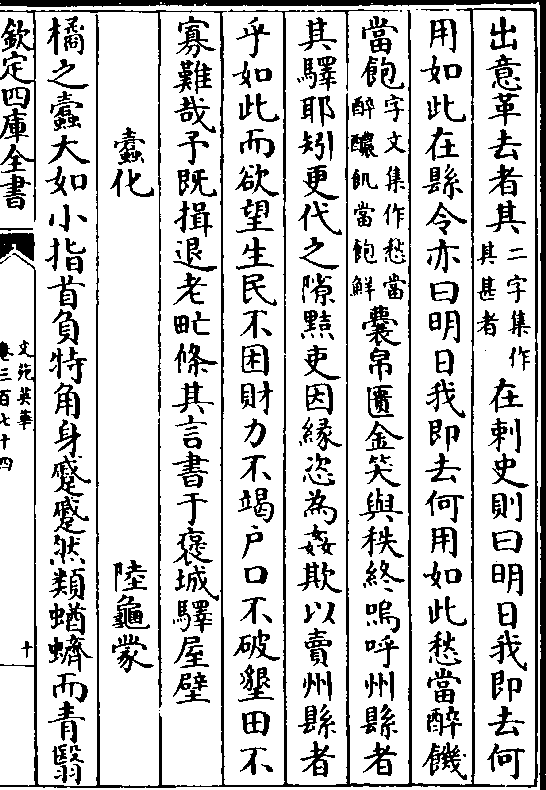 出意革去者其二字集作其甚者在刺史則曰明日我即去何
用如此在縣令亦曰明日我即去何用如此愁當醉饑
當飽字文集作愁當醉醲飢當飽鮮囊帛匱金笑與秩終嗚呼州縣者
其驛耶矧更代之隙黠吏因緣恣為姦欺以賣州縣者
乎如此而欲望生民不困財力不竭户口不破墾田不
寡難哉予既揖退老甿條其言書于襃城驛屋壁
蠹化
陸龜蒙
橘之蠹大如小指首負特角身蹙蹙然類蝤蠐而青翳
欽定四庫全書
文苑英華
卷三百七十四
十